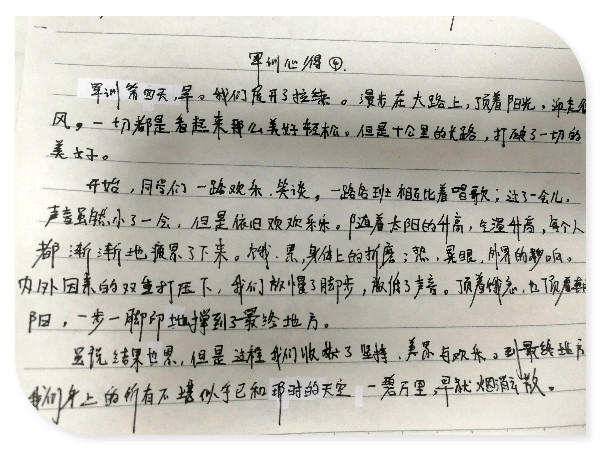 军训心得④.
军训第四天,早。我们展开了拉练。漫步在大路上,顶着阳光,迎着
风。一切都是看起来那么美好轻松。但是十公里的长路,打破了一切的
美好。
开始,同学们一路欢乐、笑谈。一路各班相互比着唱歌;过了一会儿,
声音虽然小了一会,但是依旧欢欢乐乐。随着太阳的升高,气温升高,每个人
都渐渐地疲累了下来。饿、累,身体上的折磨;热、晃眼,外界的影响。
内外因素的双重打压下,我们放慢了脚步,放低了声音。顶着饿意,也顶着
阳,一步一脚印地撑到了最终地方。
虽说结果也累,但是过程我们收获了坚持、美景与欢乐。到最终地方
我们身上的所有不堪似乎已和那时的天空 一碧万里,早就烟消云散。